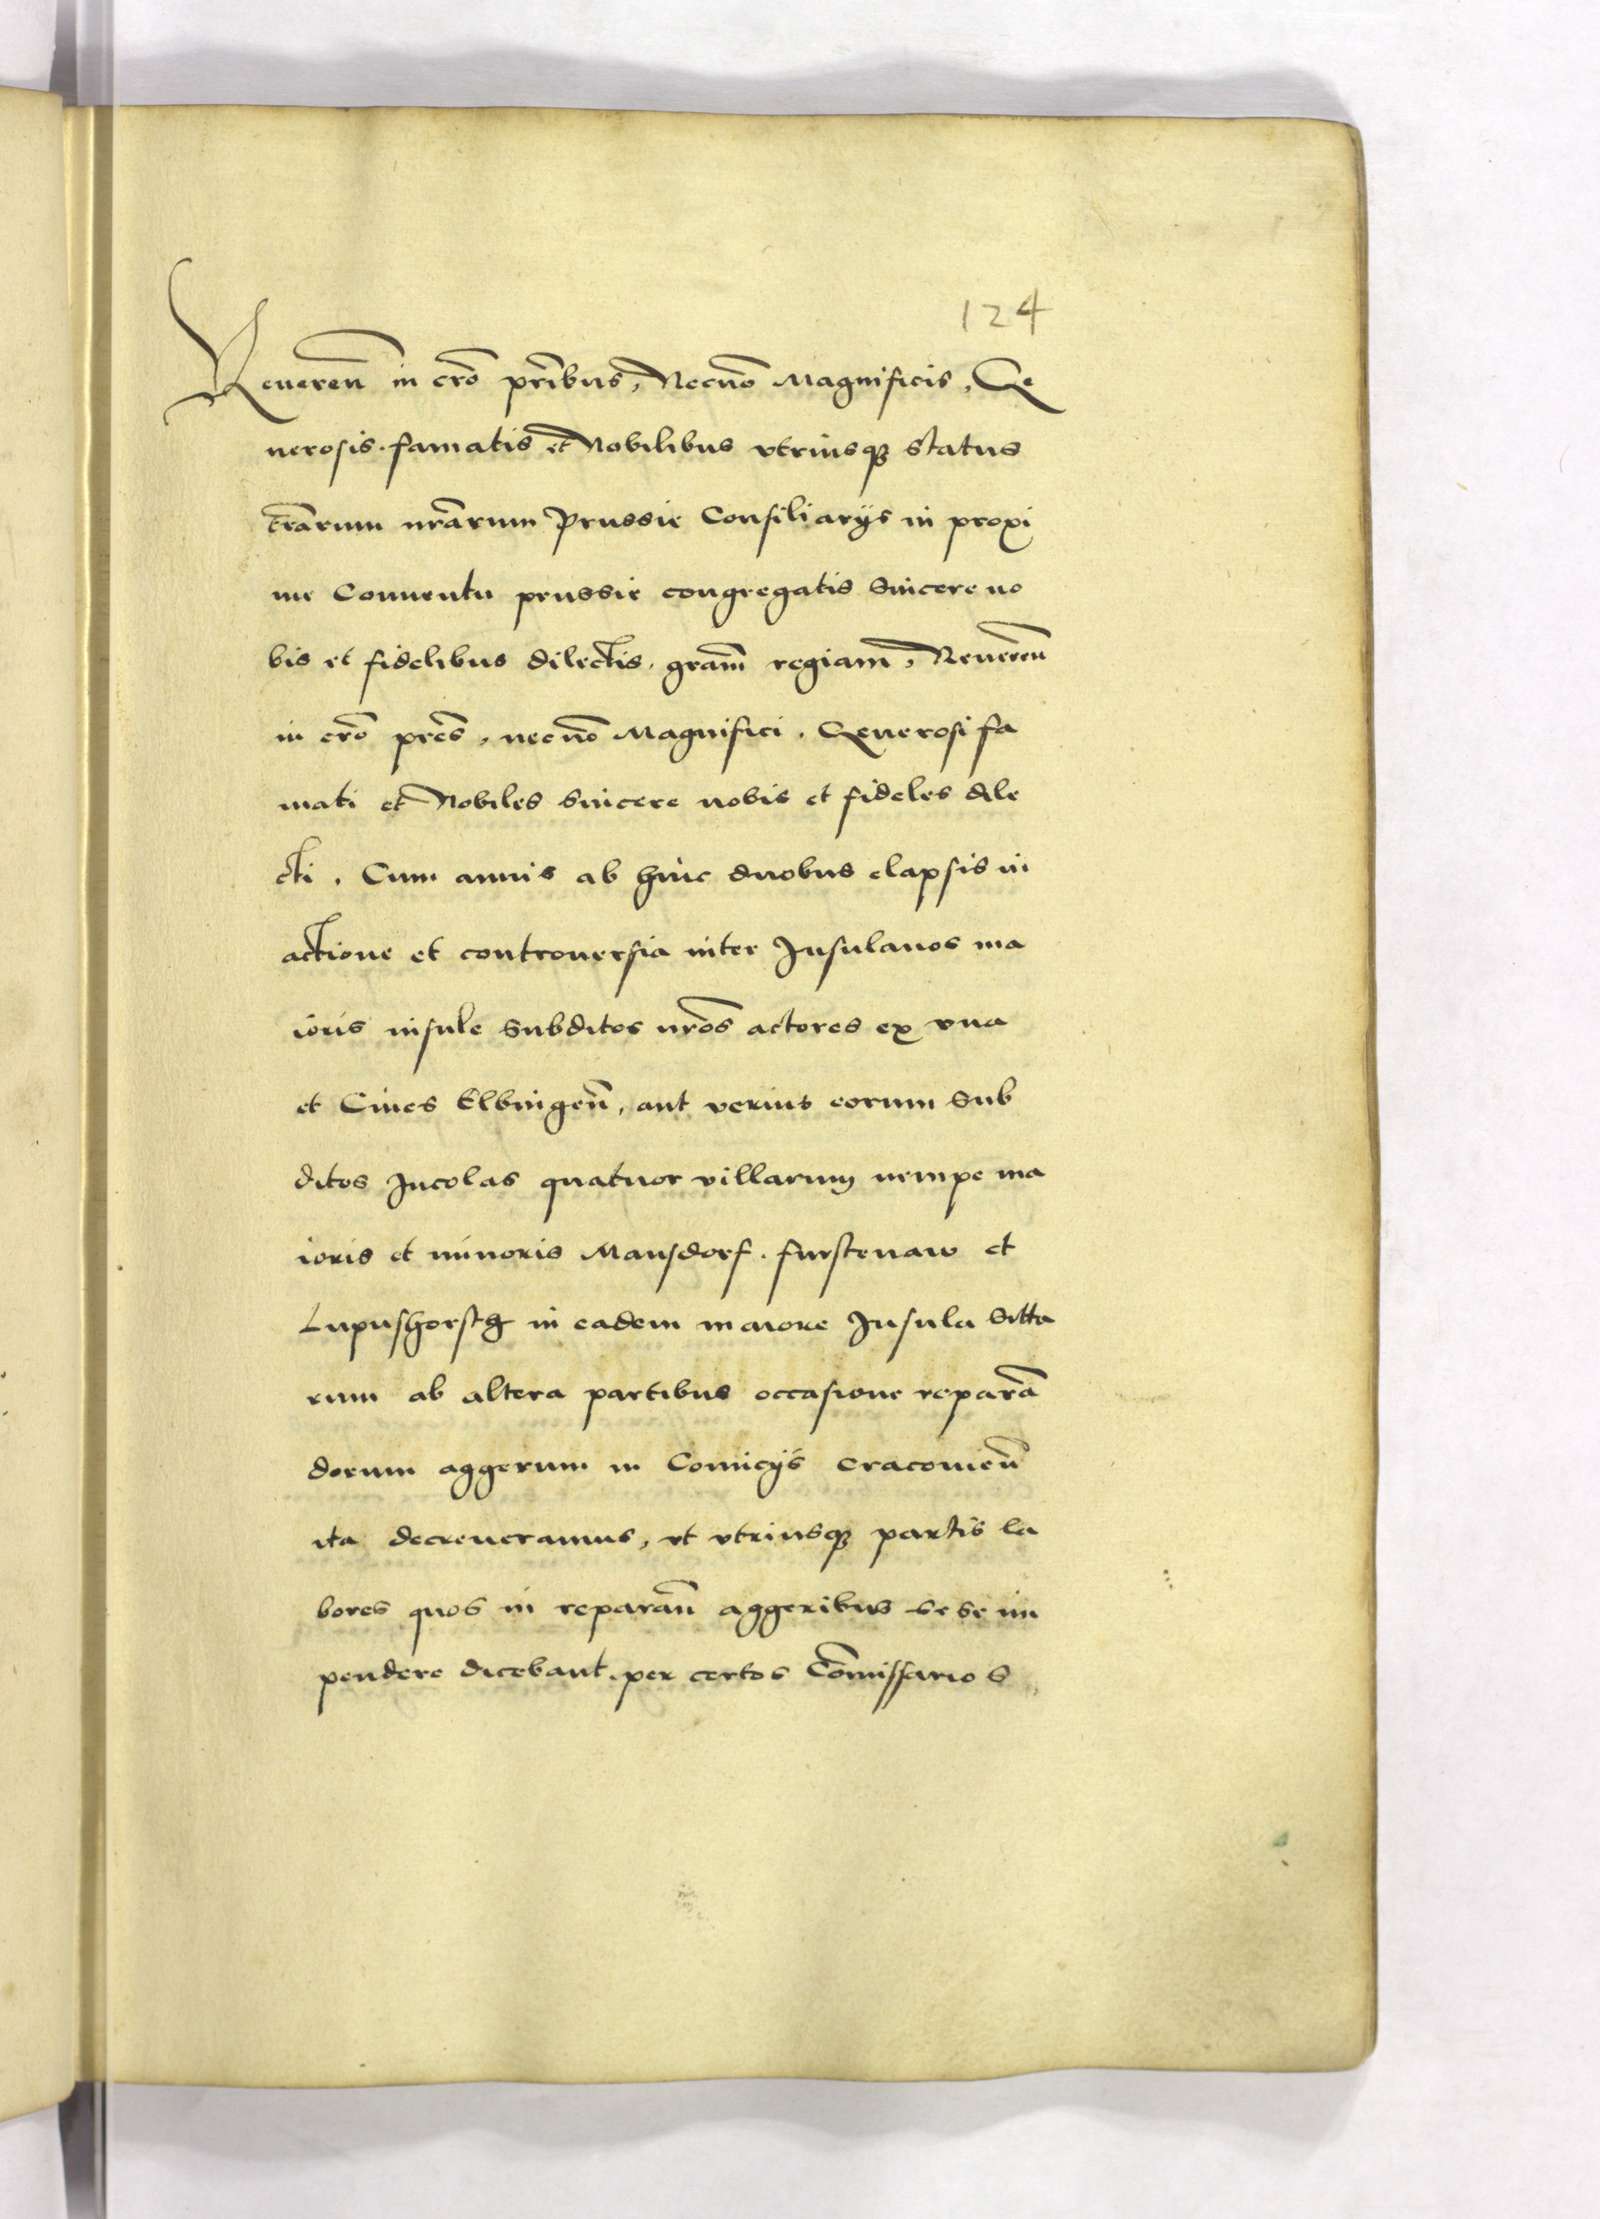 124
Reueren̄ in cro̅ pr̅ibus, Necno̅ Magnificis, Ge
nerosis. famatis et Nobilibus vtriusq; status
tr̅arum nr̅arum Prussie Consiliarijs in proxi
me Conuentu prussie congregatis Sincere no
bis et fidelibus dilectis. gram̅ regiam, Reueren̅
in cro̅ pr̅es, necno̅ Magnifici. Generosi fa
mati et Nobiles Sincere nobis et fideles dile
cti. Cum annis ab hinc duobus elapsis in
actione et controuersia inter Insulanos ma
ioris insule Subditos nr̅os actores ex vna
et Ciues Elbingen̅, aut verius eorum Sub
ditos Incolas quatuor villarum nempe ma
ioris et minoris Mansdorf. furstenaw et
Lupushorsth in eadem maiore Insula Sitta
rum ab altera partibus occasione repara̅
dorum aggerum in Comicijs cracouien̅
ita decreueramus, vt vtriusq; partis la
bores quos in reparan̅ aggeribus sese im
pendere dicebant. per certos Com̅issarios